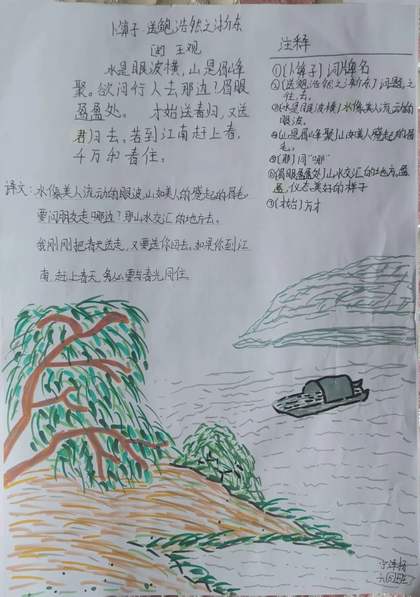 卜算子 送鲍浩然之浙东
王观
水是眼波横,山是眉峰
聚。欲问行人去那边?眉眼
盈盈处。 才始送春归,又送
君归去。若到江南赶上春,
千万和春住。
译文:水像美人流动的眼波,山如美人的蹙起的眉毛
要问朋友走哪边?到山水交汇的地方去。
我刚刚把春天送走,又要送你回去。如果你到江
南,赶上春天,千万要与春光同住。
注释
①(卜算子)词牌名
②(送鲍浩然之浙东)词题,之
往,去。
③(水是眼波横)水像美人流动的
眼波。
④(山是眉峰聚)山如美人蹙起的眉
毛。
⑤(那)同"哪"
⑥(眉眼盈盈处)山水交汇的地方,盈
盈,仪态美好的样子
⑦(才始)方才